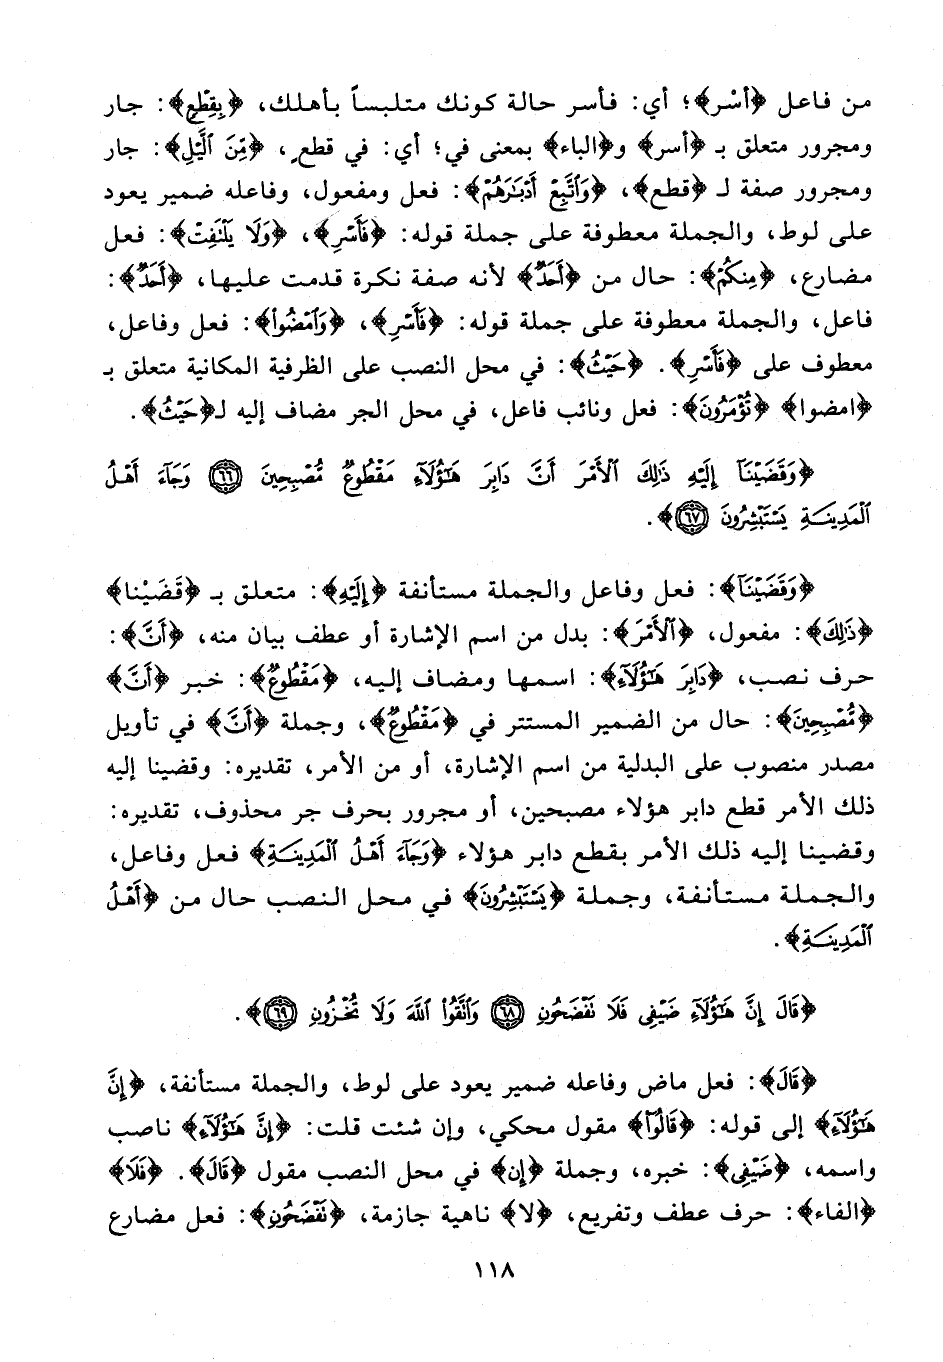 من فاعل ﴿أَسْر﴾؛ أي: فأسر حالة كونك متلبساً بأهلك، ﴿بِقِطْعٍ﴾: جار
ومجرور متعلق بـ ﴿أسر﴾ و﴿الباء﴾ بمعنى في؛ أي: في قطعٍ، ﴿مِّنَ ٱلَّيْلِ﴾: جار
ومجرور صفة لـ ﴿قطع﴾، ﴿وَٱتَّبِعْ أَدْبَـٰرَهُمْ﴾: فعل ومفعول، وفاعله ضمير يعود
على لوط، والجملة معطوفة على جملة قوله: ﴿فَأَسْرِ﴾، ﴿وَلَا يَلْتَفِتْ﴾: فعل
مضارع، ﴿مِنكُمْ﴾: حال من ﴿أَحَدٌ﴾ لأنه صفة نكرة قدمت عليها، ﴿أَحَدٌ﴾:
فاعل، والجملة معطوفة على جملة قوله: ﴿فَأَسْرِ﴾، ﴿وَٱمْضُوا۟﴾: فعل وفاعل،
معطوف على ﴿فَأَسْرِ﴾. ﴿حَيْثُ﴾: في محل النصب على الظرفية المكانية متعلق بـ
﴿امضوا﴾ ﴿تُؤْمَرُونَ﴾: فعل ونائب فاعل، في محل الجر مضاف إليه لـ﴿حَيْثُ﴾.
﴿وَقَضَيْنَآ إِلَيْهِ ذَٰلِكَ ٱلْأَمْرَ أَنَّ دَابِرَ هَـٰٓؤُلَآءِ مَقْطُوعٌ مُّصْبِحِينَ ٦٦ وَجَآءَ أَهْلُ
ٱلْمَدِينَةِ يَسْتَبْشِرُونَ ٦٧﴾.
﴿وَقَضَيْنَآ﴾: فعل وفاعل والجملة مستأنفة ﴿إِلَيْهِ﴾: متعلق بـ ﴿قَضَيْنا﴾
﴿ذَٰلِكَ﴾: مفعول، ﴿ٱلْأَمْرَ﴾: بدل من اسم الإشارة أو عطف بيان منه، ﴿أَنَّ﴾:
حرف نصب، ﴿دَابِرَ هَـٰٓؤُلَآءِ﴾: اسمها ومضاف إليه، ﴿مَقْطُوعٌ﴾: خبر ﴿أَنَّ﴾
﴿مُّصْبِحِينَ﴾: حال من الضمير المستتر في ﴿مَقْطُوعٌ﴾، وجملة ﴿أَنَّ﴾ في تأويل
مصدر منصوب على البدلية من اسم الإشارة، أو من الأمر، تقديره: وقضينا إليه
ذلك الأمر قطع دابر هؤلاء مصبحين، أو مجرور بحرف جر محذوف، تقديره:
وقضينا إليه ذلك الأمر بقطع دابر هؤلاء ﴿وَجَآءَ أَهْلُ ٱلْمَدِينَةِ﴾ فعل وفاعل،
والجملة مستأنفة، وجملة ﴿يَسْتَبْشِرُونَ﴾ في محل النصب حال من ﴿أَهْلُ
ٱلْمَدِينَةِ﴾.
﴿قَالَ إِنَّ هَـٰٓؤُلَآءِ ضَيْفِى فَلَا تَفْضَحُونِ ٦٨ وَٱتَّقُوا۟ ٱللَّهَ وَلَا تُخْزُونِ ٦٩﴾.
﴿قَالَ﴾: فعل ماض وفاعله ضمير يعود على لوط، والجملة مستأنفة، ﴿إِنَّ
هَـٰٓؤُلَآءِ﴾ إلى قوله: ﴿قَالُوٓا۟﴾ مقول محكي، وإن شئت قلت: ﴿إِنَّ هَـٰٓؤُلَآءِ﴾ ناصب
واسمه، ﴿ضَيْفِى﴾: خبره، وجملة ﴿إن﴾ في محل النصب مقول ﴿قَالَ﴾. ﴿فَلَا﴾
﴿الفاء﴾: حرف عطف وتفريع، ﴿لا﴾ ناهية جازمة، ﴿تَفْضَحُونِ﴾: فعل مضارع
١١٨